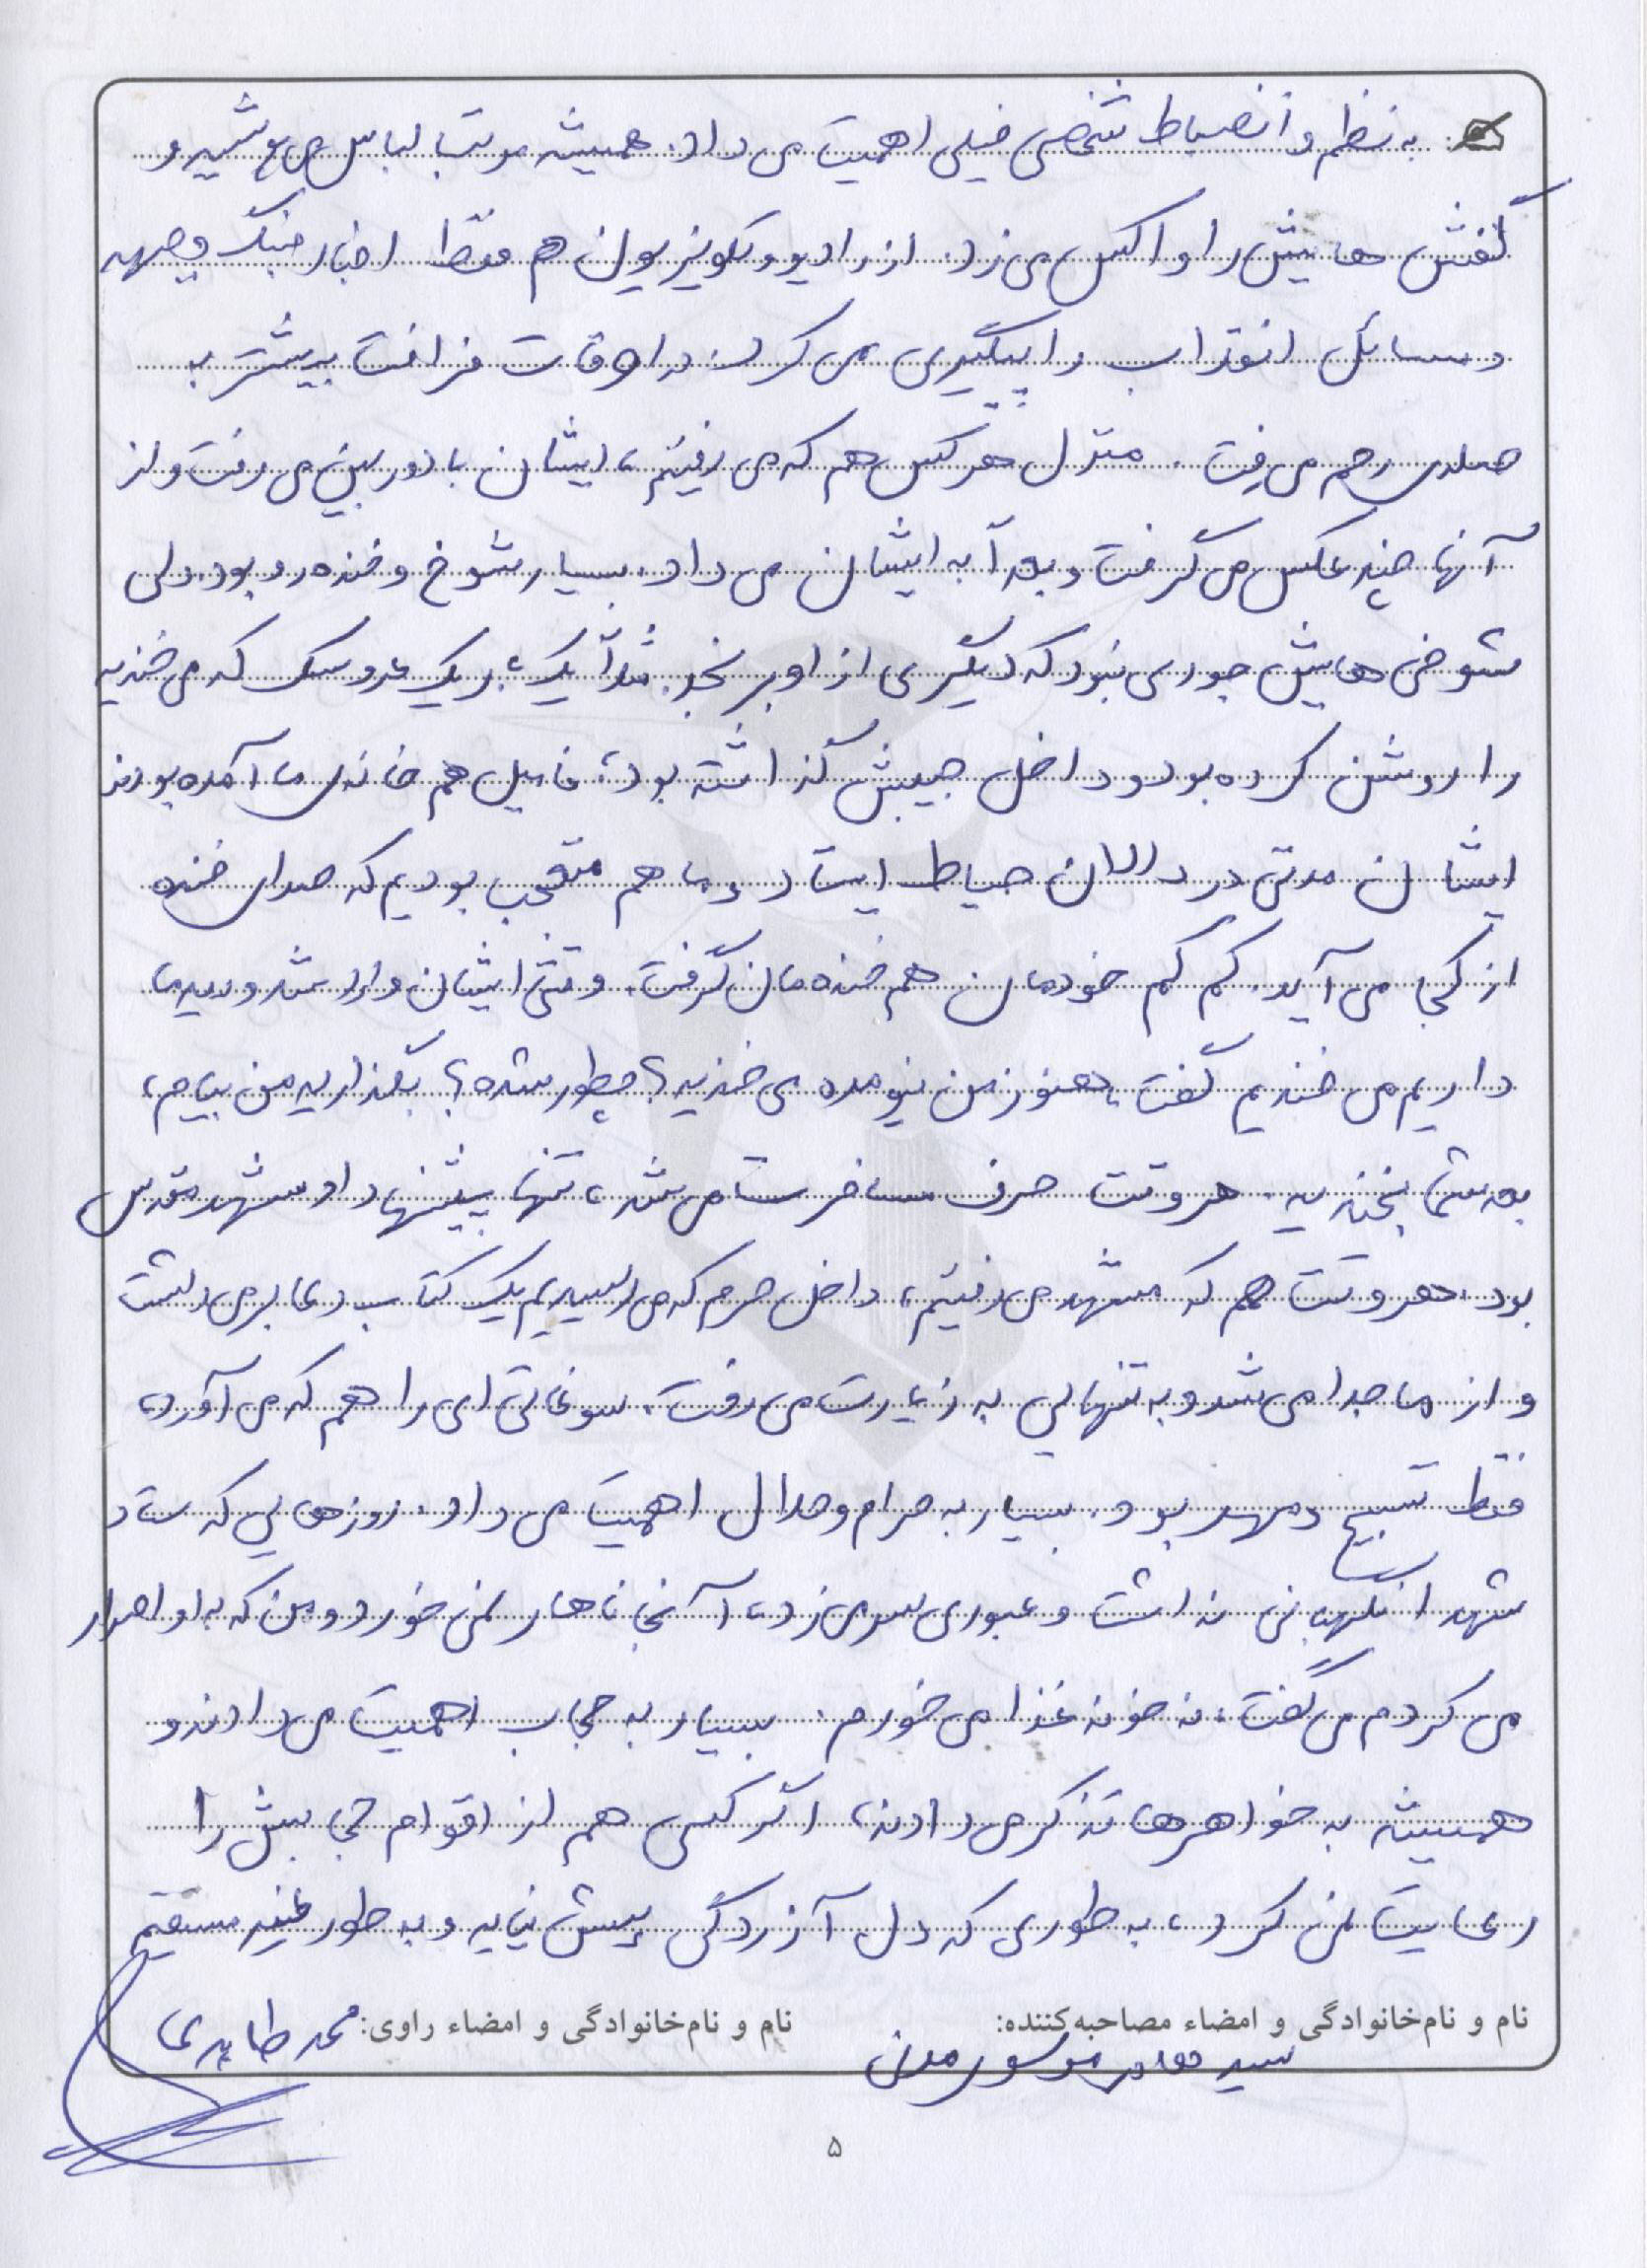 به نظم و انضباط شخصی خیلی اهمیت می داد. همیشه مرتب لباس می پوشید و
کفش هایش را واکس می زد. از رادیو و تلویزیون هم فقط اخبار جنگ و جبهه
و مسائل انقلاب را پیگیری می کرد. در اوقات فراغت بیشتر به
صله‌ی رحم می رفت. منزل هر کس هم که می رفتیم، ایشان با دوربین می رفت و از
آنها چند عکس می گرفت و بعداً به ایشان می داد. بسیار شوخ و خنده رو بود. ولی
شوخی هایش جوری نبود که دیگری از او برنجد. مثلاً یک بار یک عروسک که می خندید
را روشن کرده بود و داخل جیبش گذاشته بود، فامیل هم خانه‌ی ما آمده بودند
ایشان مدتی در دالان حیاط ایستاد و ما هم متعجب بودیم که صدای خنده
از کجا می آید. کم کم خودمان هم خنده مان گرفت. وقتی ایشان وارد شد و دید ما
داریم می خندیم گفت، هنوز من نیومده می خندید؟ چطور شده؟ بگذارید من بیام،
بعد شما بخندید. هر وقت حرف مسافرت می شد، تنها پیشنهاد او مشهد مقدس
بود. هر وقت هم که مشهد می رفتیم، داخل حرم که می رسیدیم یک کتاب دعا برمی داشت
و از ما جدا می شد و به تنهایی به زیارت می رفت. سوغاتی ای را هم که می آورد،
فقط تسبیح و مهر بود. بسیار به حرام و حلال اهمیت می داد. روزهایی که ستاد
شهدا نگهبانی نداشت و عبوری سر می زد، آنجا ناهار نمی خورد و من که به او اصرار
می کردم می گفت، نه خونه غذا می خورم. بسیار به حجاب اهمیت می دادند و
همیشه به خواهرها تذکر می دادند، اگر کسی هم از اقوام حجابش را
رعایت نمی کرد، به طوری که دل آزردگی پیش نیاید و به طور غیر مستقیم
نام و نام‌خانوادگی و امضاء مصاحبه‌کننده: سید موسوی
نام و نام‌خانوادگی و امضاء راوی: محمد طاهری
۵